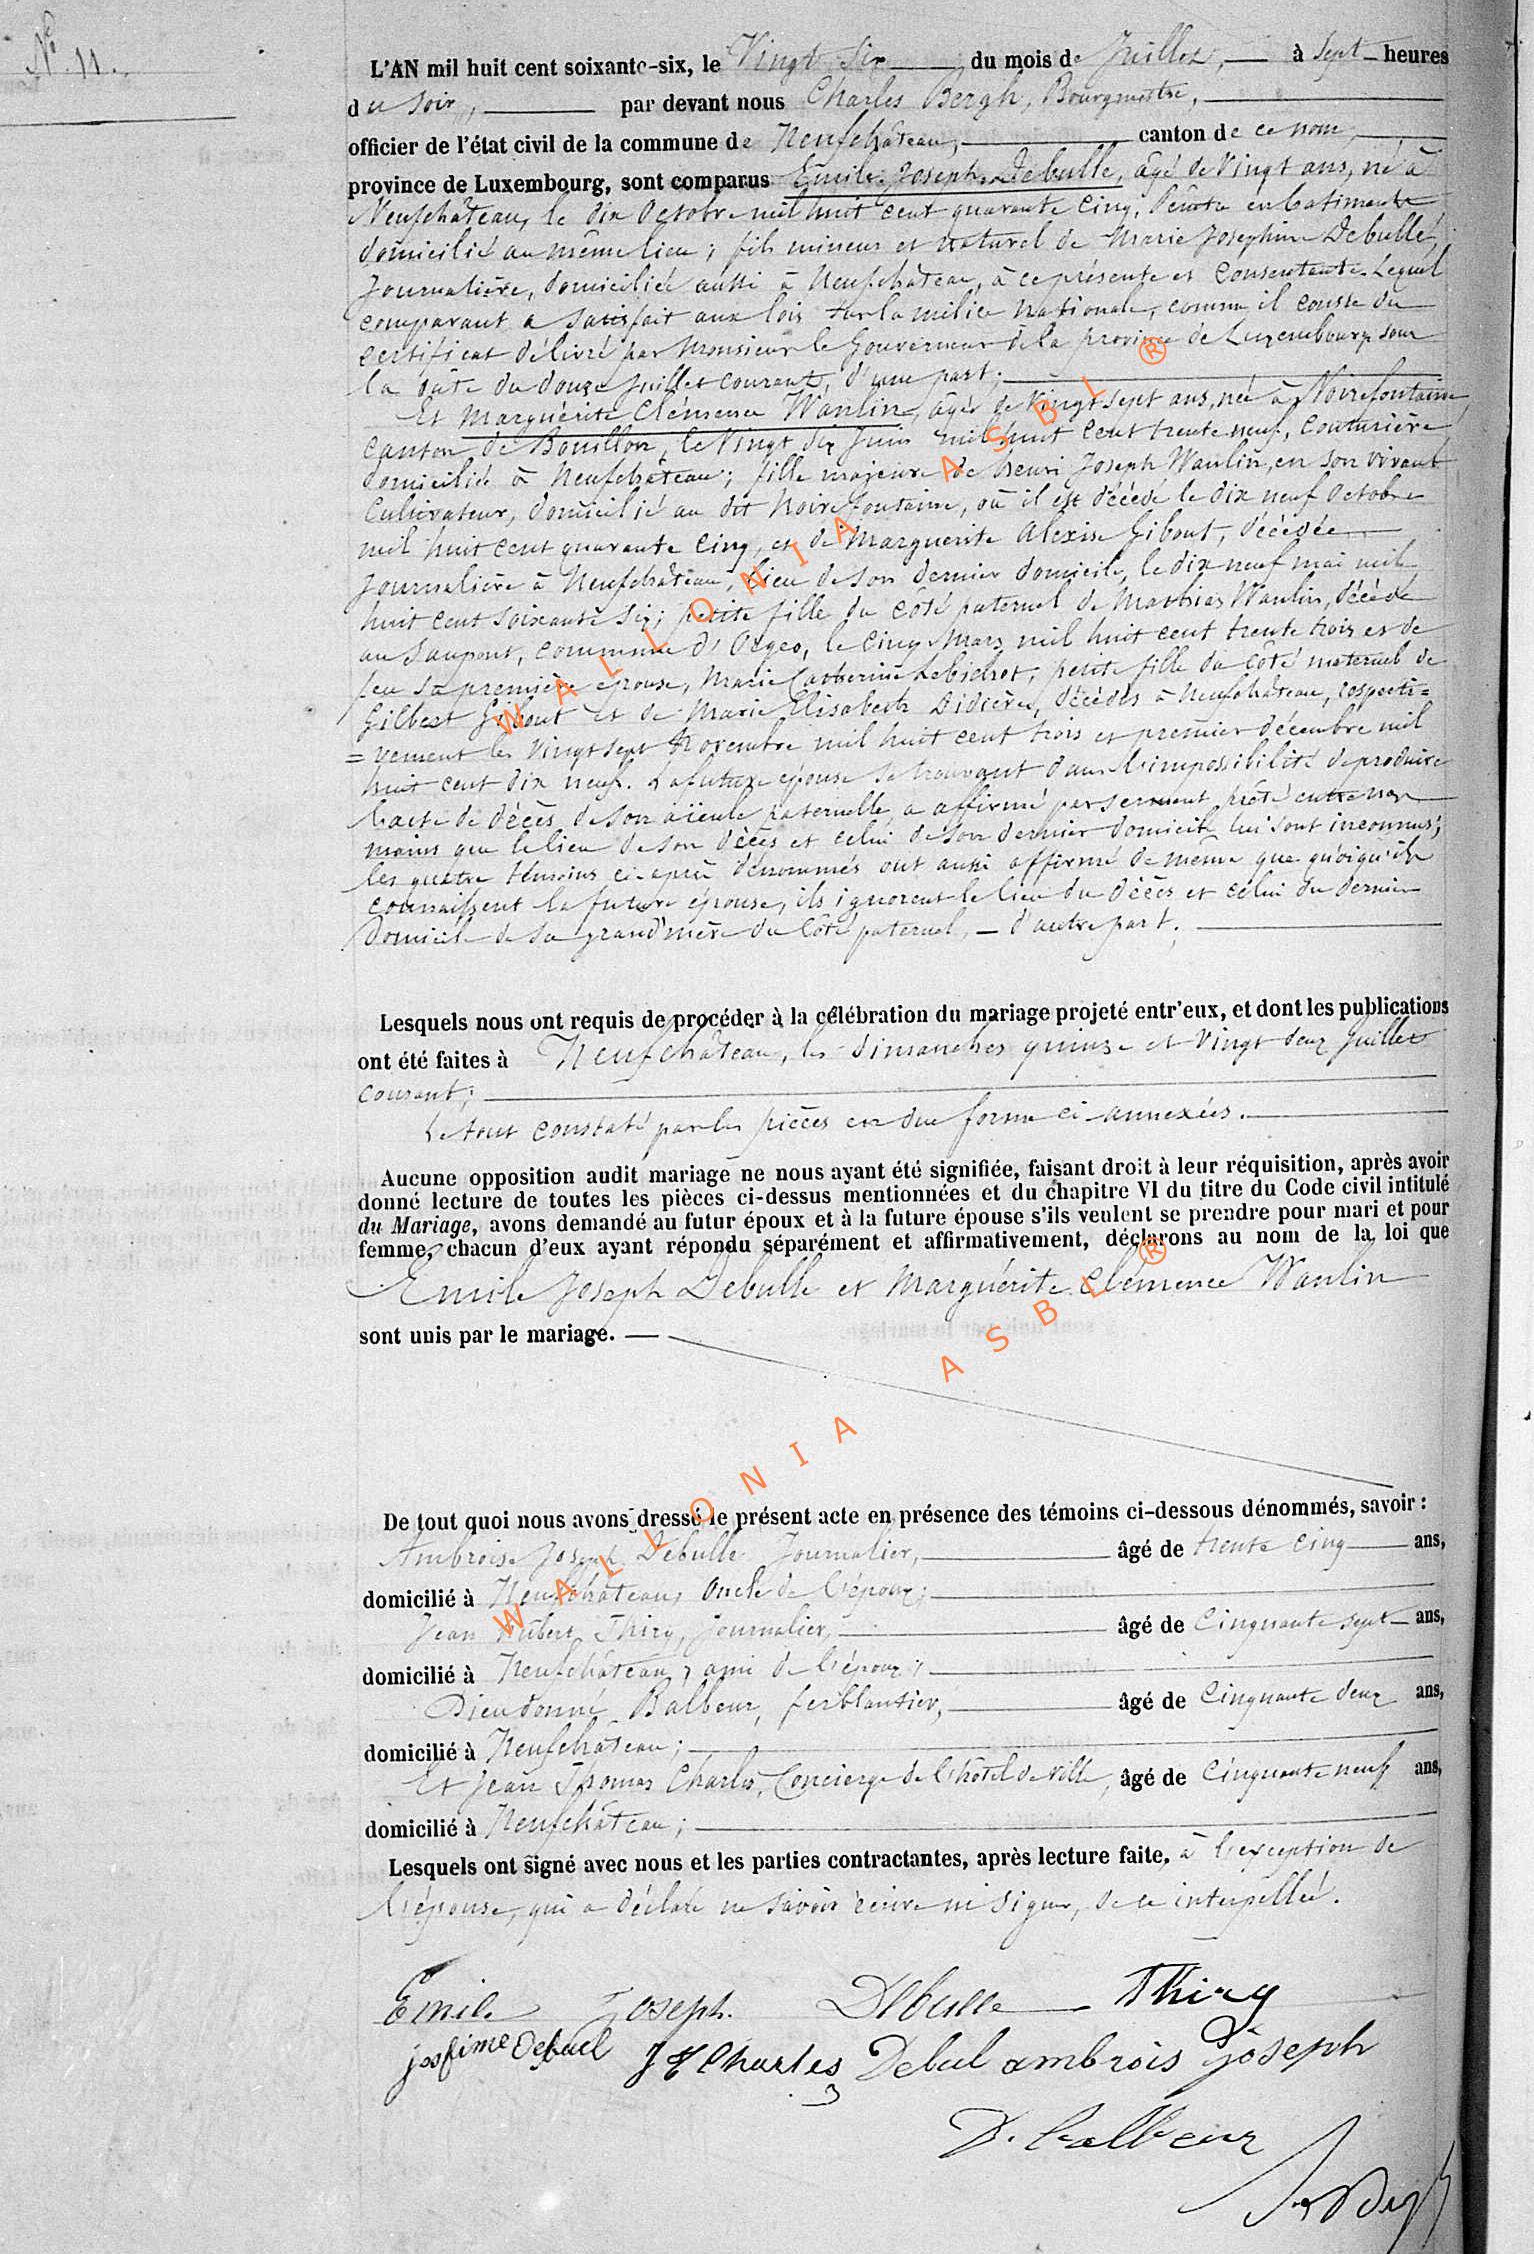 N° 11.
L'AN mil huit cent soixante-six, le Vingt six du mois de Juillet, à sept heures
du soir, par devant nous Charles Bergh, Bourgmestre,
officier de l'état civil de la commune de Neufchâteau, canton de ce nom,
province de Luxembourg, sont comparus Emile Joseph Debulle, âgé de Vingt ans, né à
Neufchâteau, le dix Octobre mil huit cent quarante cinq, Peintre en batiments
domicilié au même lieu; fils mineur et naturel de Marie Joséphine Debulle,
Journalière, domiciliée aussi à Neufchâteau, à ce présente et consentante. Lequel
comparant a satisfait aux lois sur la milice nationale, comme il conste du
certificat délivré par Monsieur le Gouverneur de la province de Luxembourg sous
la date du douze Juillet courant, d'une part;
Et Marguérite Clémence Wanlin, âgée de Vingt sept ans, née à Noirefontaine,
canton de Bouillon, le Vingt six Juin mil huit cent trente neuf, Couturière
domiciliée à Neufchâteau; fille majeure de henri Joseph Wanlin, en son vivant
Cultivateur, domicilié au dit Noirefontaine, où il est décédé le dix neuf Octobre
mil huit cent quarante cinq, et de Marguerite Alexise Gibout, décédée
Journalière à Neufchâteau, lieu de son dernier domicile, le dix neuf mai mil
huit cent soixante six; petite fille du côté paternel de Mathias Wanlin, décédé
au Saupont, commune d'Ocgeo, le cinq Mars mil huit cent trente trois et de
feu sa première épouse, Marie Catherine Lebichot; petite fille du côté maternel de
Gilbert Gibout et de Marie Elisabeth Didières, décédés à Neufchâteau, respecti=
=vement les Vingt sept Novembre mil huit cent trois et premier décembre mil
huit cent dix neuf. La future épouse se trouvant dans l'impossibilité de produire
l'acte de décès de son aïeule paternelle, a affirmé par serment prêté entre nos
mains que le lieu de son décès et celui de son dernier domicile lui sont inconnus;
les quatre témoins ci-après dénommés ont aussi affirmé de même que quoiqu'ils
connaissent la future épouse, ils ignorent le lieu du décès et celui du dernier
domicile de sa grand'mère du côté paternel, – d'autre part;
Lesquels nous ont requis de procéder à la célébration du mariage projeté entr'eux, et dont les publications
ont été faites à Neufchâteau, les dimanches quinze et Vingt deux Juillet
courant;
Le tout constaté par les pièces en due forme ci-annexées.
Aucune opposition audit mariage ne nous ayant été signifiée, faisant droit à leur réquisition, après avoir
donné lecture de toutes les pièces ci-dessus mentionnées et du chapitre VI du titre du Code civil intitulé
du Mariage, avons demandé au futur époux et à la future épouse s'ils veulent se prendre pour mari et pour
femme, chacun d'eux ayant répondu séparément et affirmativement, déclarons au nom de la loi que
Emile Joseph Debulle et Marguérite Clémence Wanlin
sont unis par le mariage.
De tout quoi nous avons dressé le présent acte en présence des témoins ci-dessous dénommés, savoir :
Ambroise Joseph Debulle Journalier, âgé de trente cinq ans,
domicilié à Neufchâteau, Oncle de l'époux;
Jean Hubert Thiry, Journalier, âgé de Cinquante sept ans,
domicilié à Neufchâteau, ami de l'époux;
Dieudonné Balbeur, ferblantier, âgé de Cinquante deux ans,
domicilié à Neufchâteau;
Et Jean Thomas Charles, Concierge de l'hôtel de ville, âgé de Cinquante neuf ans,
domicilié à Neufchâteau;
Lesquels ont signé avec nous et les parties contractantes, après lecture faite, à l'exception de
l'épouse, qui a déclaré ne savoir écrire ni signer, de ce interpellée.
Emile Joseph. Debulle Thiry
Debul ambrois joseph
J T Charles
D. balbeur
WALLONIA ASBL ®
WALLONIA ASBL ®